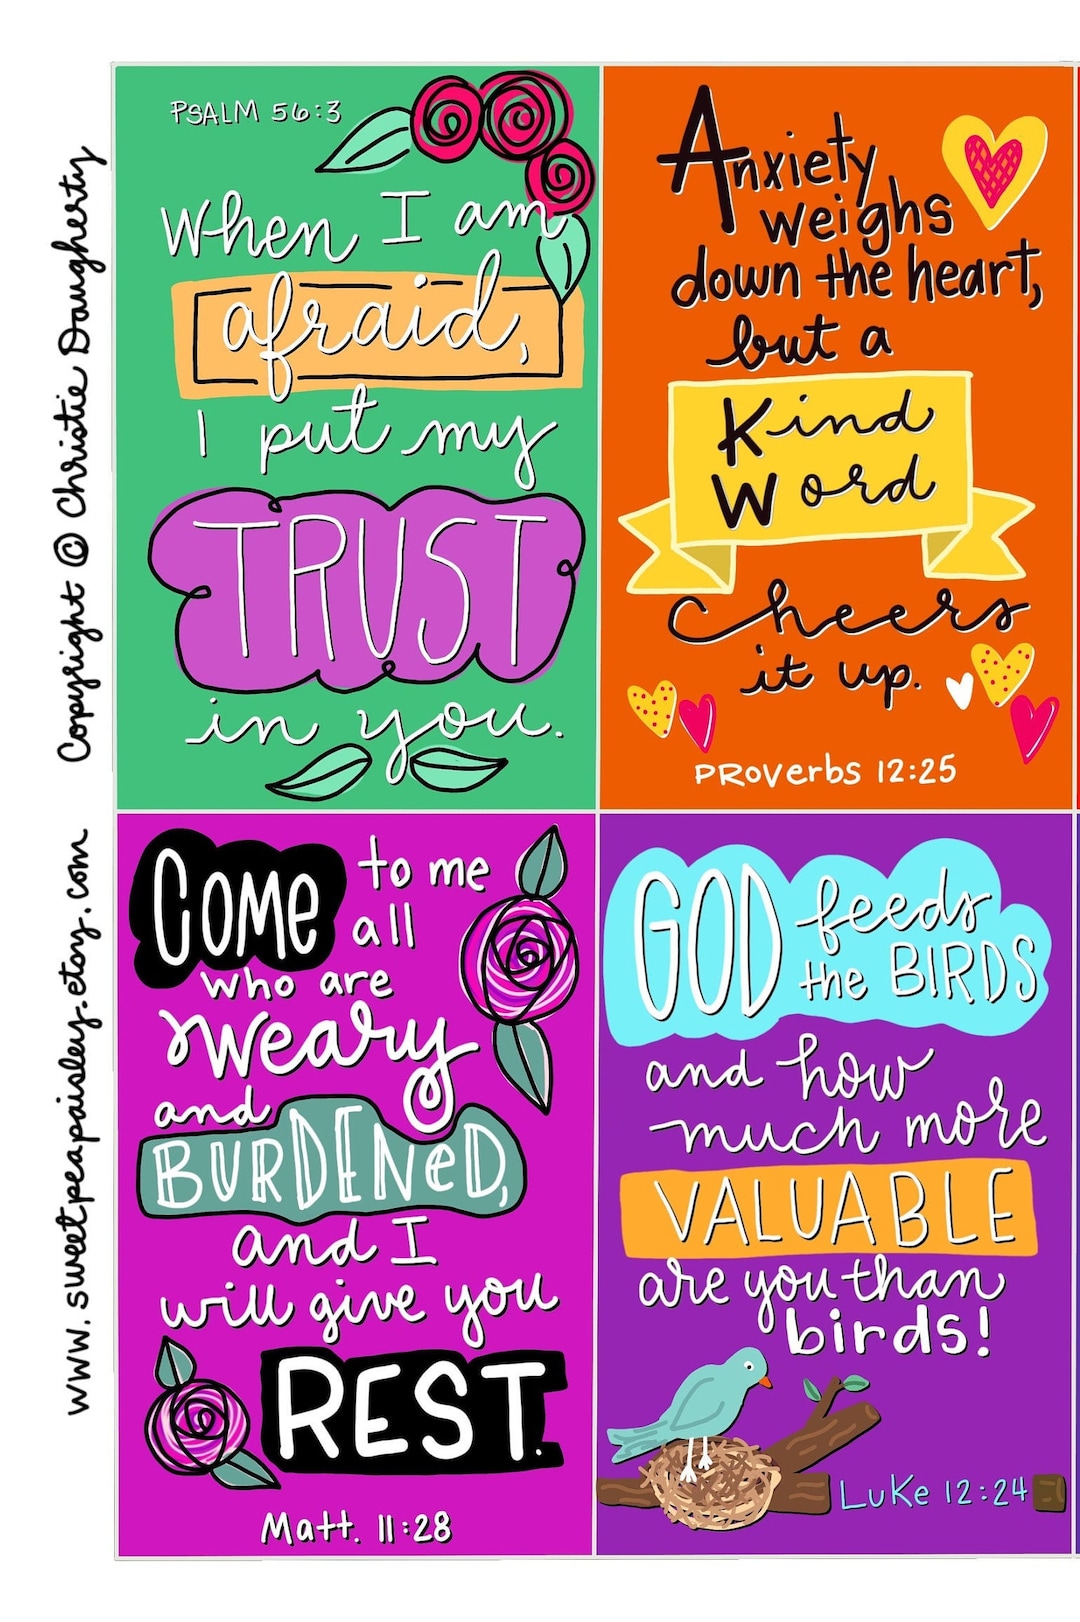 Copyright © Christie Daugherty
www.sweetpeapaisley.etsy.com
PSALM 56:3
When I am
afraid,
I put my
TRUST
in you.
Anxiety
weighs
down the heart,
but a
Kind
Word
Cheers
it up.
PRoverbs 12:25
COME to me
all
who are
weary
and
BURDENeD,
and I
will give you
REST.
Matt. 11:28
GOD feeds
the BIRDS
and how
much more
VALUABLE
are you than
birds!
LuKe 12:24